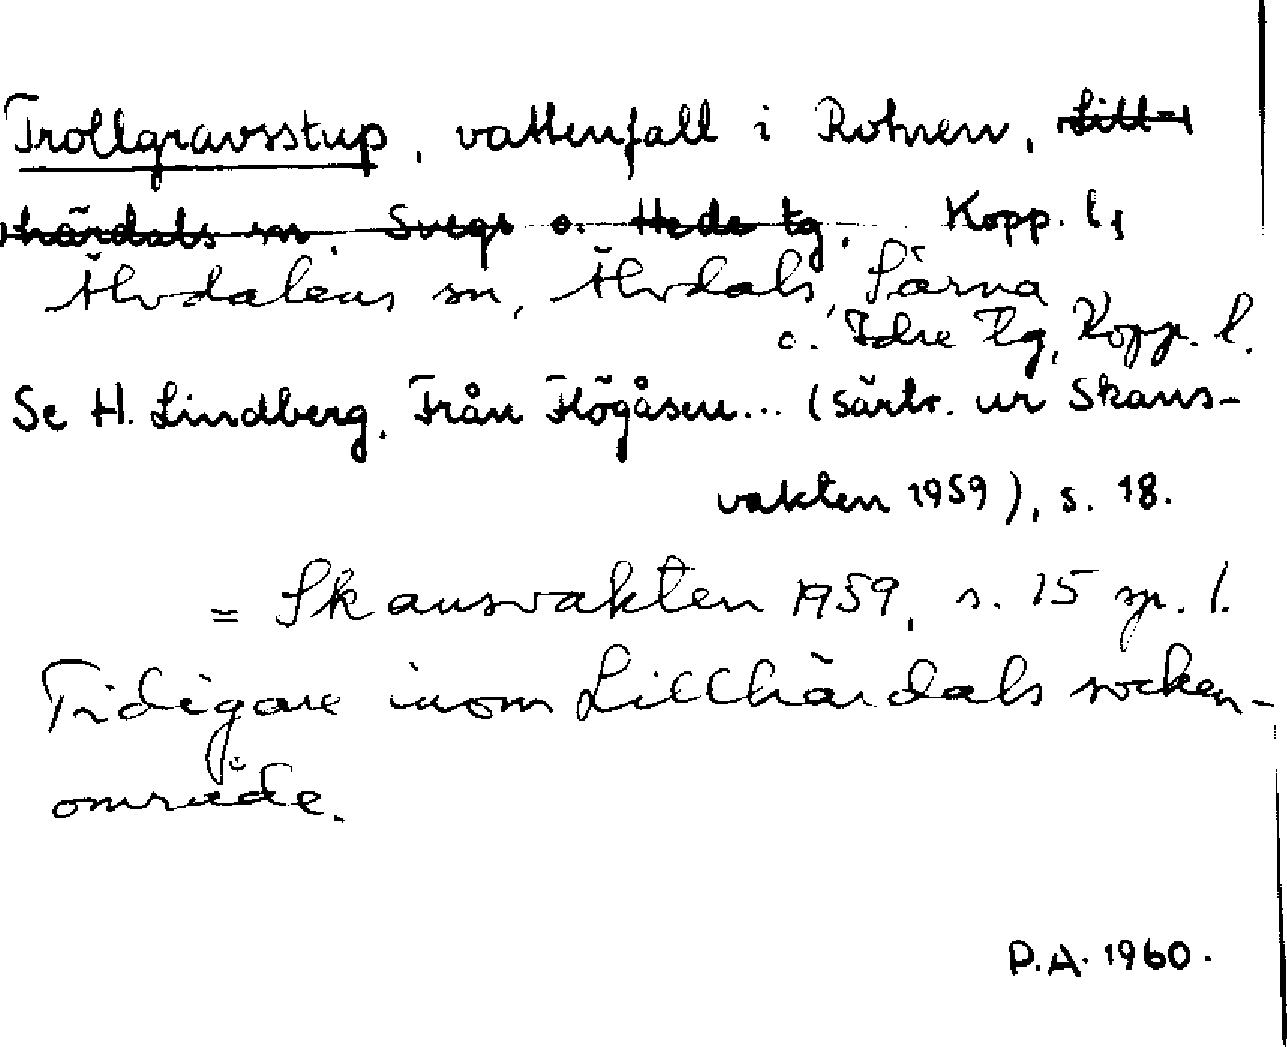 Trollgravsstup, vattenfall i Rotnen, Lill-
härdals sn. Svegs o. Hede tg. Kopp. l,
Älvdalens sn, Älvdals, Särna
o. Idre tg, Kopp. l.
Se H. Lindberg, Från Högåsen... (särtr. ur Skans-
vakten 1959), s. 18.
= Skansvakten 1959, s. 15 sp. 1.
Tidigare inom Lillhärdals socken-
område.
P.A. 1960.